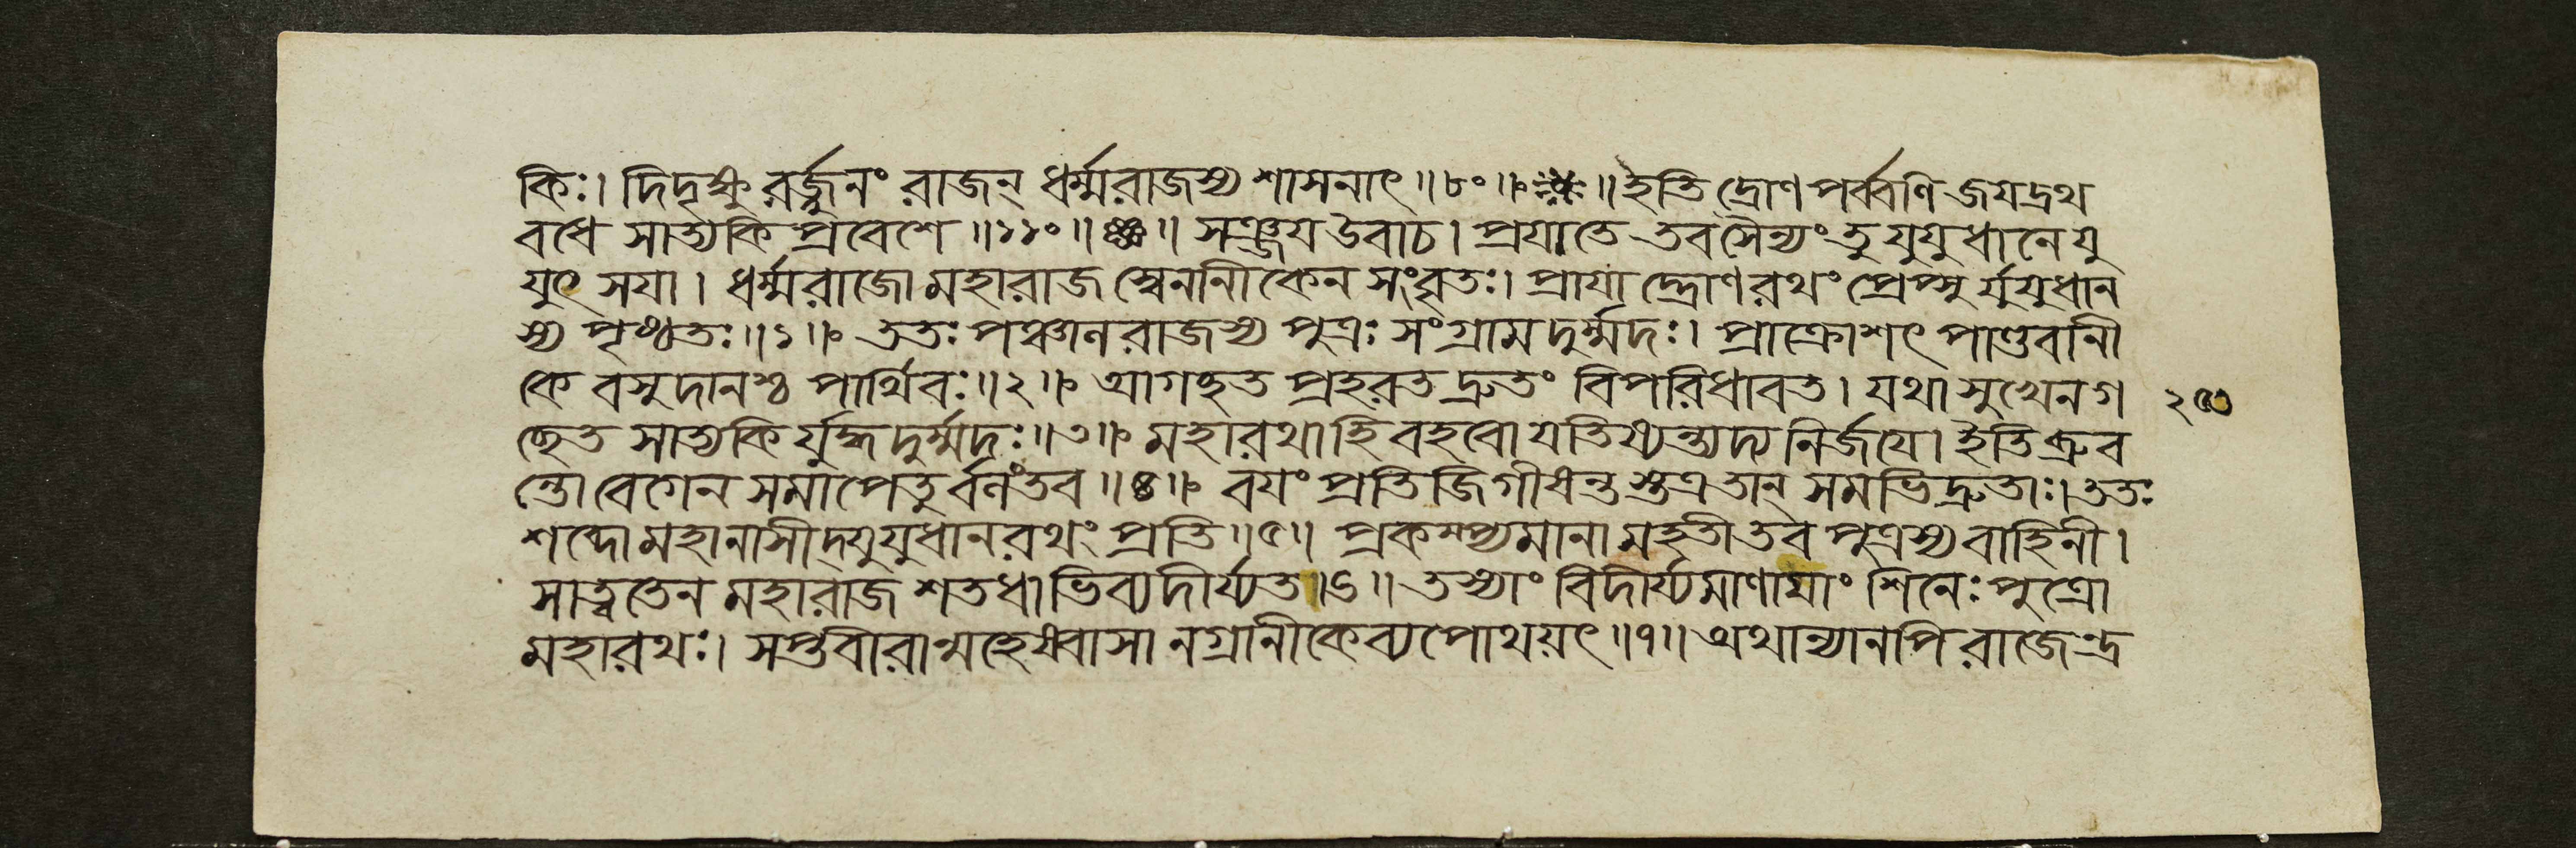 কিঃ। দিদৃক্ষু রর্জ্জুনং রাজন্ ধর্ম্মরাজস্য শাসনাৎ॥৮০॥ ॥ইতি দ্রোণ পর্ব্বণি জয়দ্রথ
বধে সাত্যকি প্রবেশে॥১১০॥ ॥ সঞ্জয উবাচ। প্রযাতে তব সৈন্যং তু যুযুধানে যু
যুৎ সযা। ধর্ম্মরাজো মহারাজ স্বেনানীকেন সংবৃতঃ। প্রাযাদ্দ্রোণরথং প্রেপ্সু র্যুযুধান
স্য পৃষ্ঠতঃ॥১॥ ততঃ পঞ্চালরাজস্য পুত্রঃ সংগ্রাম দুর্ম্মদঃ। প্রাক্রোশৎ পাণ্ডবানী
কে বসুদানশ্চ পার্থিবঃ॥২॥ আগচ্ছত প্রহরত দ্রুতং বিপরিধাবত। যথা সুখেন গ ২৫৩
চ্ছেত সাত্যকি র্যুদ্ধ দুর্ম্মদঃ॥৩॥ মহারথাহি বহবো যতিষ্যন্ত্যস্য নির্জযে। ইতি ব্রুব
ন্তো বেগেন সমাপেতু র্বলংতব॥৪॥ বযং প্রতি জিগীষন্ত স্তত্র তান্ সমভিদ্রুতাঃ। ততঃ
শব্দো মহানাসীদ্যুযুধান রথং প্রতি॥৫॥ প্রকম্প্যমানা মহতী তব পুত্রস্য বাহিনী।
সাত্বতেন মহারাজ শতধাভিব্যদীর্য্যত॥৬॥ তস্যাং বিদীর্য্যমাণাযাং শিনেঃ পুত্রো
মহারথঃ। সপ্তবীরান্মহেষ্বাসা নগ্রানীকেব্যপোথয়ৎ॥৭॥ অথান্যানপি রাজেন্দ্র